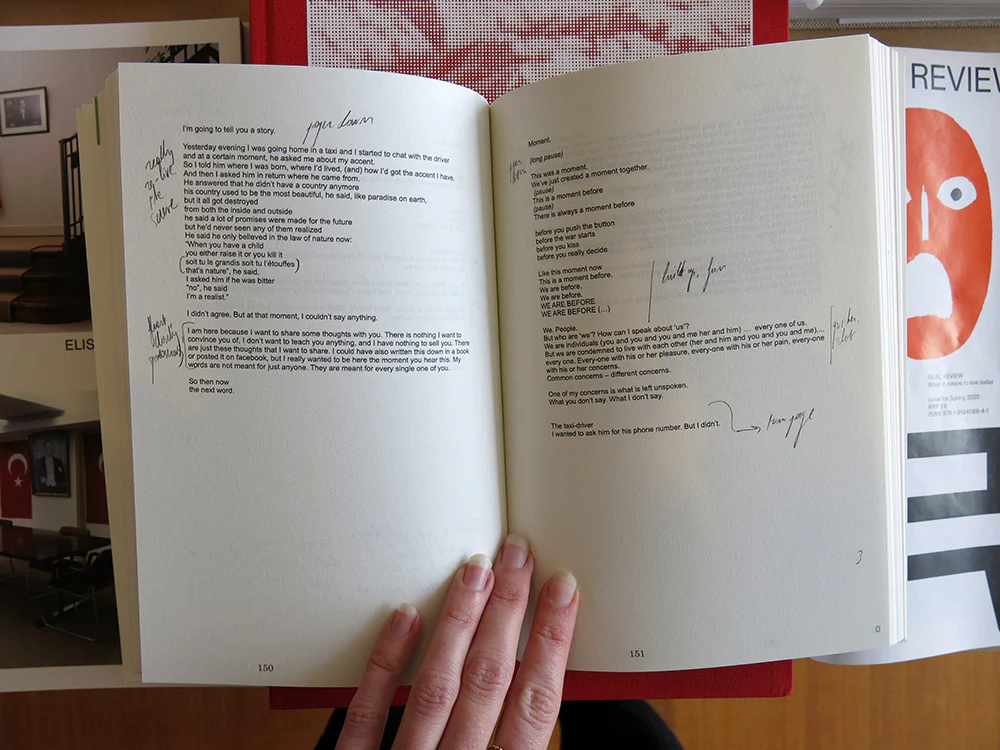 I'm going to tell you a story.
paper down
Yesterday evening I was going home in a taxi and I started to chat with the driver
and at a certain moment, he asked me about my accent.
So I told him where I was born, where I'd lived, (and) how I'd got the accent I have.
And then I asked him in return where he came from.
He answered that he didn't have a country anymore
his country used to be the most beautiful, he said, like paradise on earth,
but it all got destroyed
from both the inside and outside
he said a lot of promises were made for the future
but he'd never seen any of them realized
He said he only believed in the law of nature now:
"When you have a child
you either raise it or you kill it
(soit tu le grandis soit tu l'étouffes)
that's nature", he said.
I asked him if he was bitter
"no", he said
I'm a realist."
really
the
I didn't agree. But at that moment, I couldn't say anything.
I am here because I want to share some thoughts with you. There is nothing I want to
convince you of, I don't want to teach you anything, and I have nothing to sell you. There
are just these thoughts that I want to share. I could have also written this down in a book
or posted it on facebook, but I really wanted to be here the moment you hear this. My
words are not meant for just anyone. They are meant for every single one of you.
So then now
the next word.
150
Moment.
(long pause)
This was a moment.
We've just created a moment together.
(pause)
This is a moment before
(pause)
There is always a moment before
before you push the button
before the war starts
before you kiss
before you really decide
Like this moment now
This is a moment before.
We are before.
We are before.
WE ARE BEFORE
WE ARE BEFORE (…)
build up, fun
We. People.
But who are 'we'? How can I speak about 'us'?
We are individuals (you and you and you and me her and him) … every one of us.
But we are condemned to live with each other (her and him and you and you and me),...
every one. Every-one with his or her pleasure, every-one with his or her pain, every-one
with his or her concerns.
Common concerns – different concerns.
One of my concerns is what is left unspoken.
What you don't say. What I don't say.
The taxi-driver
I wanted to ask him for his phone number. But I didn't.
turn page
3
0
151
ELIS
REVIEW
REAL REVIEW
What it means to live today
Issue for Spring 2020